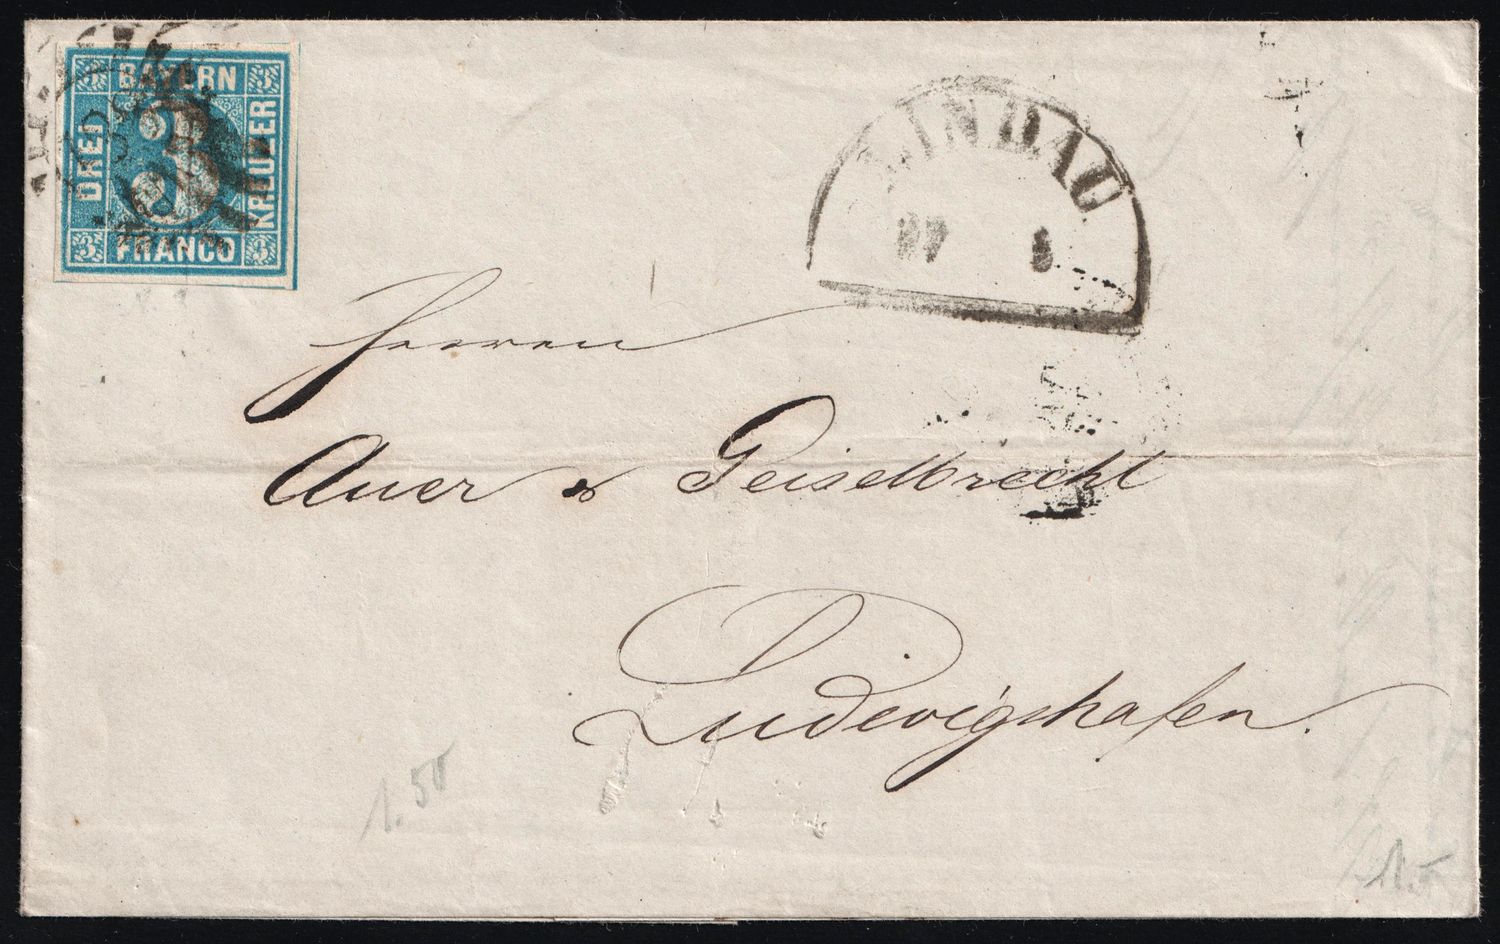 3 BAYERN 3
DREI 3 KREUZER
3 FRANCO 3
LINDAU
27
Herren
Auer & Geiselbrecht
Ludewigshafen.
1.50